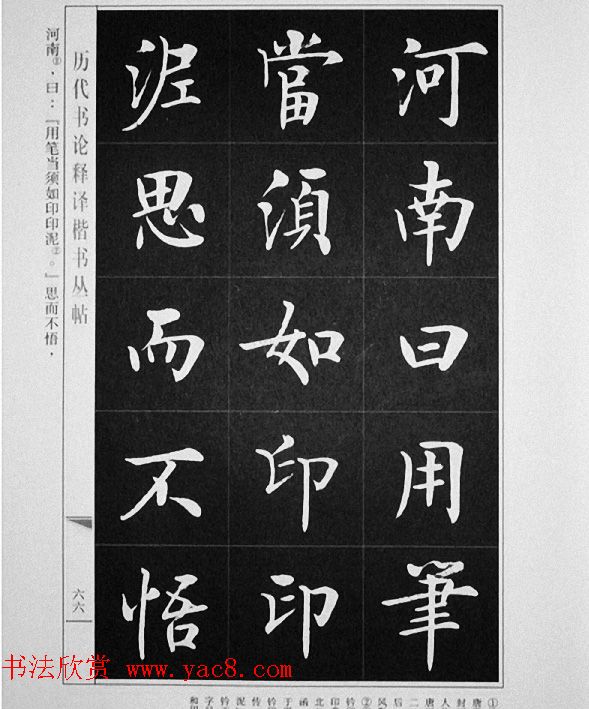 河南曰用筆
當須如印印
泥思而不悟
历代书论释译楷书丛帖
六六
河南①、曰：『用笔当须如印印泥②。』思而不悟，
书法欣赏 www.yac8.com